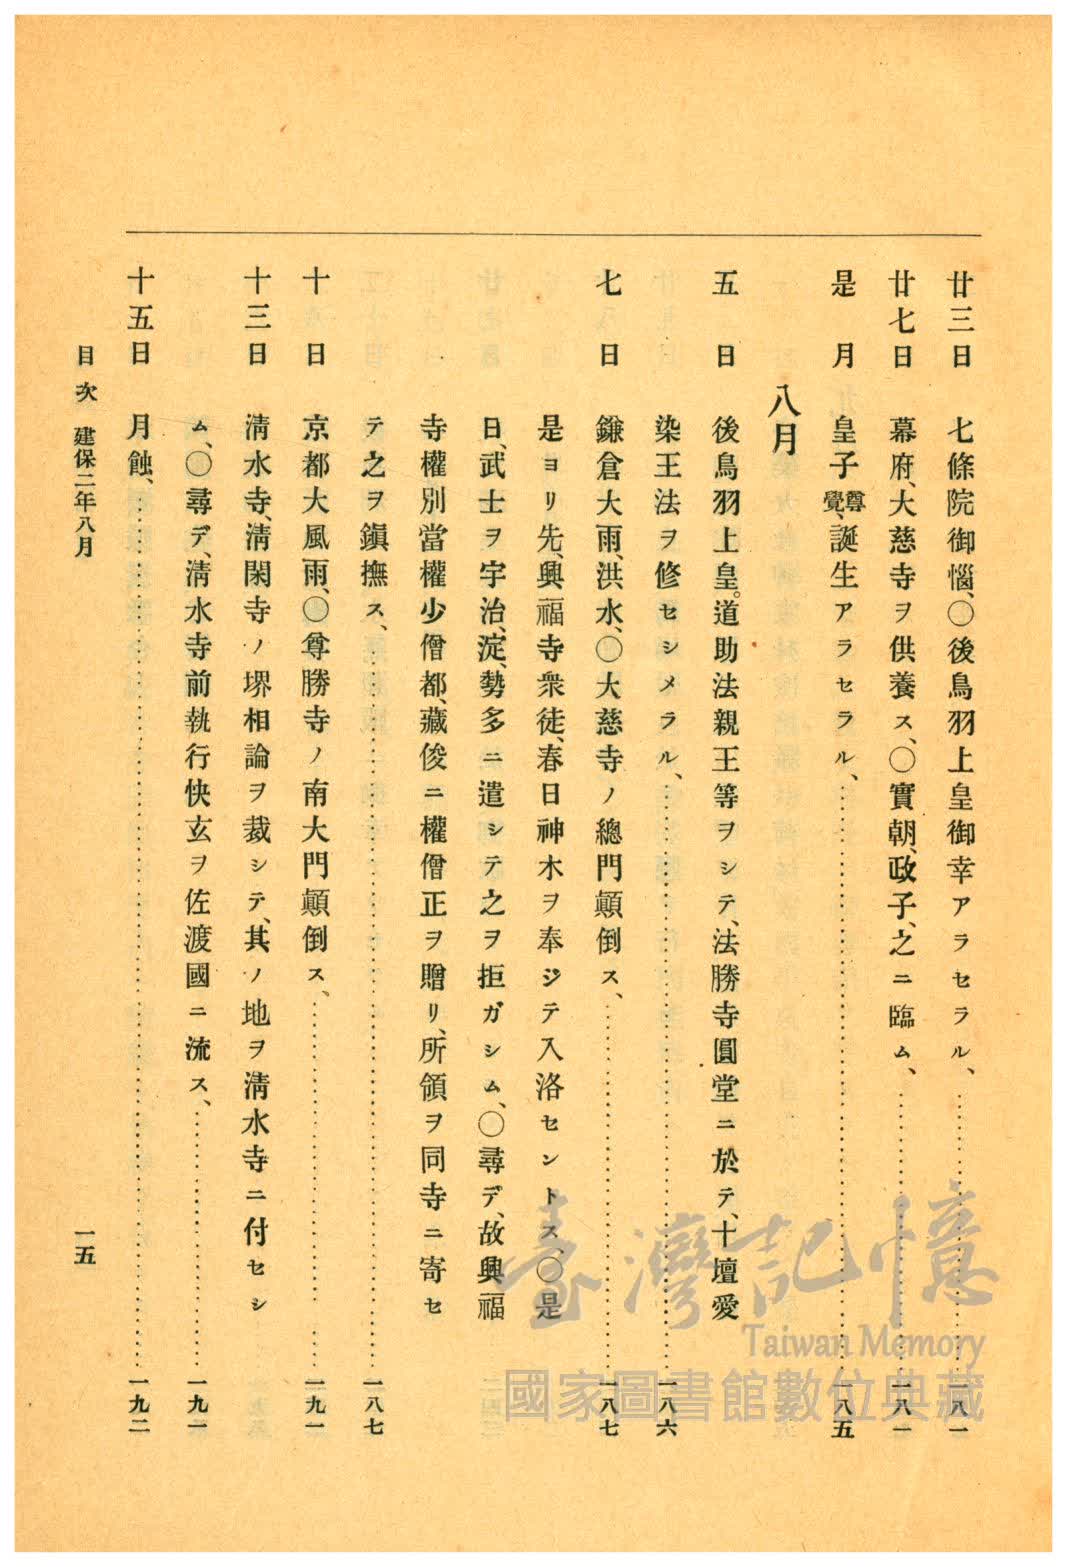 廿三日　七條院御惱、○後鳥羽上皇御幸アラセラル、……一八一
廿七日　幕府、大慈寺ヲ供養ス、○實朝、政子、之ニ臨ム、……一八一
是月　皇子尊覺、誕生アラセラル、……一八五
八月
五日　後鳥羽上皇。道助法親王等ヲシテ、法勝寺圓堂ニ於テ、十壇愛
染王法ヲ修セシメラル、……一八六
七日　鎌倉大雨、洪水、○大慈寺ノ總門顚倒ス、……一八七
是ヨリ先、興福寺衆徒、春日神木ヲ奉ジテ入洛セントス○是
日、武士ヲ宇治、淀、勢多ニ遣シテ之ヲ拒ガシム、○尋デ、故興福
寺權別當權少僧都、藏俊ニ權僧正ヲ贈リ、所領ヲ同寺ニ寄セ
テ之ヲ鎭撫ス、……一八七
十日　京都大風雨、○尊勝寺ノ南大門顚倒ス、……一九一
十三日　淸水寺、淸閑寺ノ堺相論ヲ裁シテ、其ノ地ヲ淸水寺ニ付セシ
ム、○尋デ、淸水寺前執行快玄ヲ佐渡國ニ流ス、……一九一
十五日　月蝕、……一九二
目次　建保二年八月　一五
臺灣記憶
Taiwan Memory
國家圖書館數位典藏